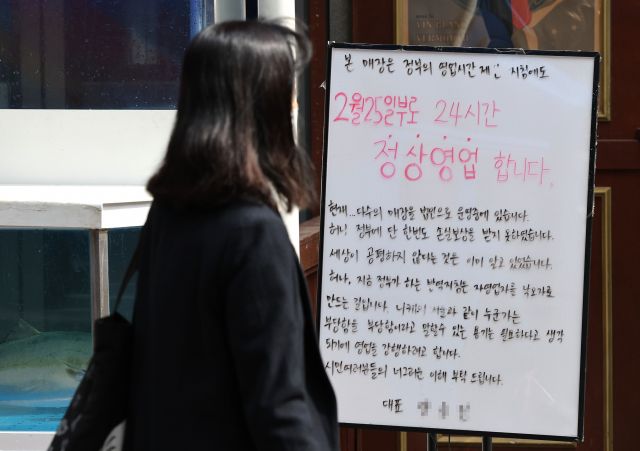 본 매장은 정부의 영업시간 제한 지침에도
2월25일부로 24시간
정상영업 합니다.
현재...다수의 매장을 법인으로 운영중에 있습니다.
허니 정부에 단 한번도 손실보상을 받지 못하였습니다.
세상이 공평하지 않다는 것은 이미 알고 있었습니다.
허나, 지금 정부가 하는 방역지침은 자영업자를 낙오자로
만드는 길입니다. 니체의 서술과 같이 누군가는
부당함을 부당함이라고 말할수 있는 용기는 필요하다고 생각
되기에 영업을 강행하려고 합니다.
시민여러분들의 너그러운 이해 부탁 드립니다.
대표